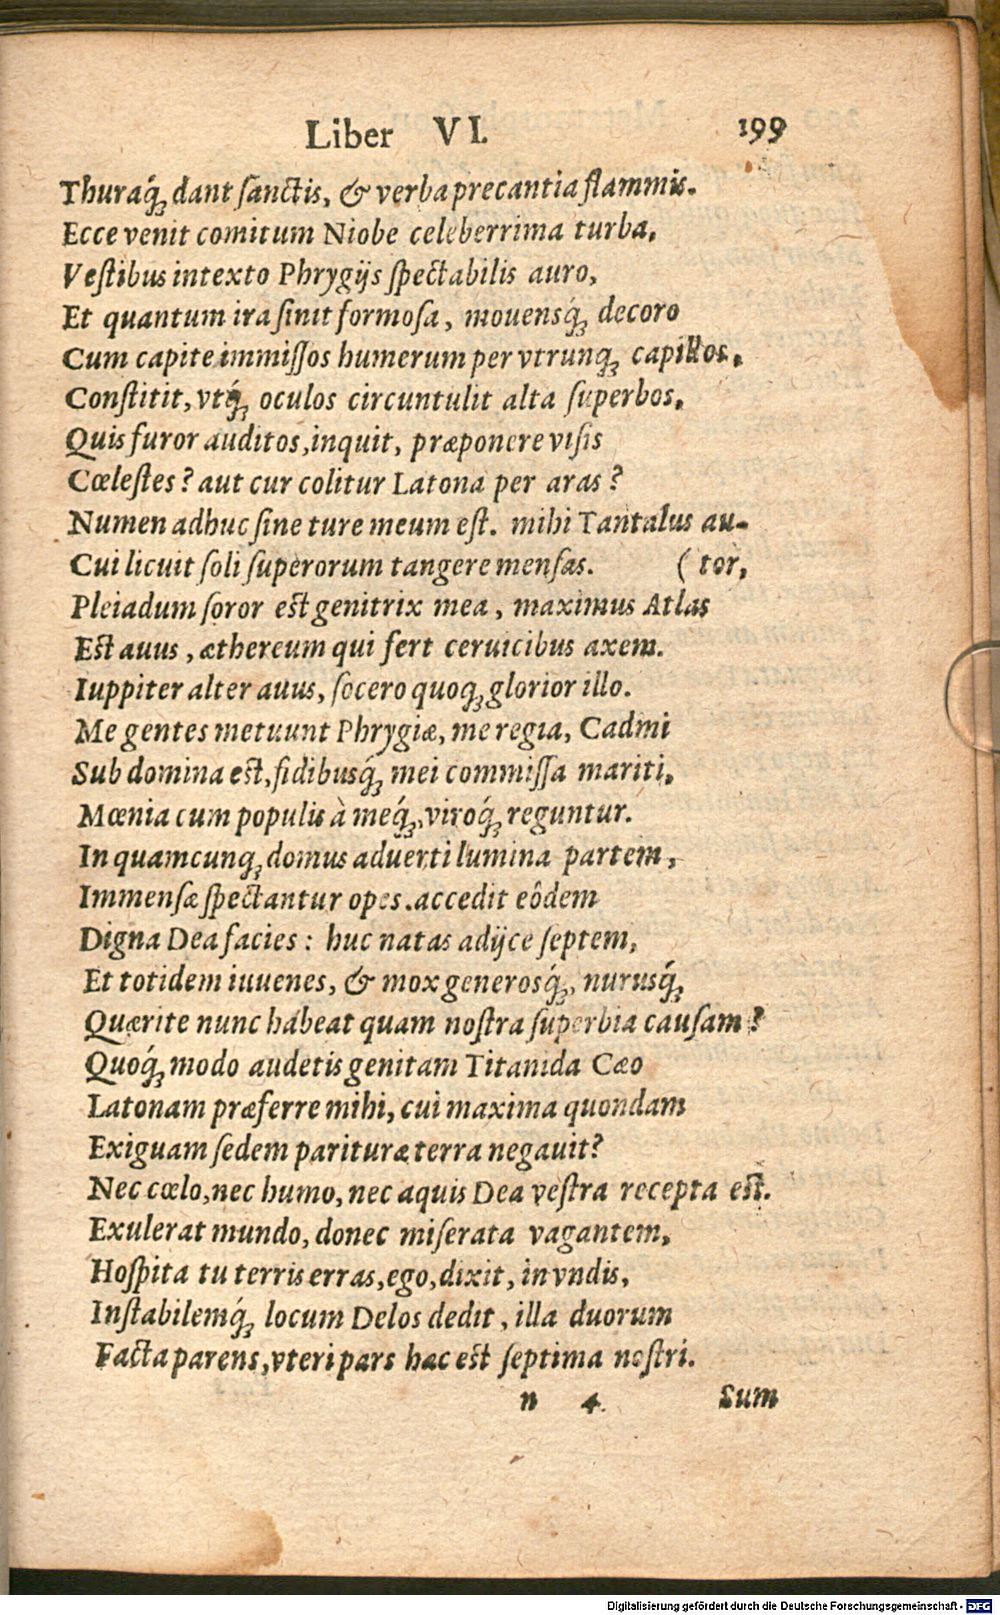 Liber VI. 199
Thuraq́ꝫ dant ſanctis, & verba precantia flammis.
Ecce venit comitum Niobe celeberrima turba,
Veſtibus intexto Phrygijs ſpectabilis auro,
Et quantum ira ſinit formoſa, mouensq́ꝫ decoro
Cum capite immiſſos humerum per vtrunqꝫ capillos,
Conſtitit, vtq́ꝫ oculos circuntulit alta ſuperbos,
Quis furor auditos, inquit, præponere viſis
Cœleſtes? aut cur colitur Latona per aras?
Numen adhuc ſine ture meum eſt. mihi Tantalus au-
Cui licuit ſoli ſuperorum tangere menſas. (tor,
Pleiadum ſoror eſt genitrix mea, maximus Atlas
Eſt auus, æthereum qui fert ceruicibus axem.
Iuppiter alter auus, ſocero quoqꝫ glorior illo.
Me gentes metuunt Phrygiæ, me regia, Cadmi
Sub domina eſt, fidibusq́ꝫ mei commiſſa mariti,
Mœnia cum populis à meq́ꝫ, viroq́ꝫ reguntur.
In quamcunqꝫ domus aduerti lumina partem,
Immenſæ ſpectantur opes. accedit eôdem
Digna Dea facies: huc natas adijce ſeptem,
Et totidem iuuenes, & mox generosq́ꝫ, nurusq́ꝫ
Quærite nunc habeat quam noſtra ſuperbia cauſam?
Quoq́ꝫ modo audetis genitam Titanida Cæo
Latonam præferre mihi, cui maxima quondam
Exiguam ſedem parituræ terra negauit?
Nec cœlo, nec humo, nec aquis Dea veſtra recepta eſt.
Exulerat mundo, donec miſerata vagantem,
Hoſpita tu terris erras, ego, dixit, in vndis,
Inſtabilemq́ꝫ locum Delos dedit, illa duorum
Facta parens, vteri pars hac eſt ſeptima noſtri.
n 4. Sum
Digitalisierung gefördert durch die Deutsche Forschungsgemeinschaft - DFG